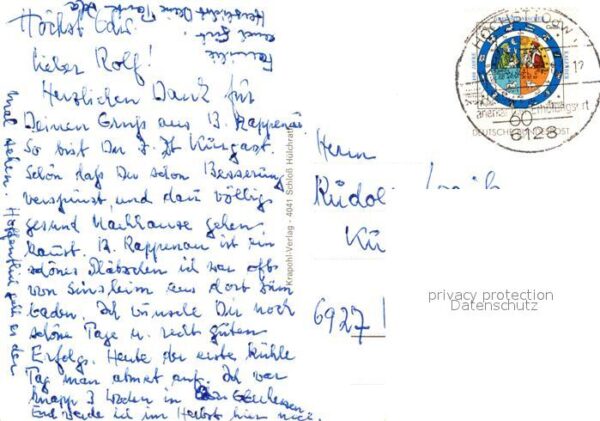 Höchst Odw.
lieber Rolf!
Herzlichen Dank für
Deinen Gruß aus B. Rappenau
So bist Du z. Zt Kurgast.
Schön daß Du schon Besserung
verspürst, und dann völlig
gesund Nachhause gehen
kannst. B. Rappenau ist ein
schönes Plätzchen ich war oft
von Sinsheim aus dort zum
baden. Ich wünsche Dir noch
schöne Tage u. recht guten
Erfolg. Heute der erste kühle
Tag man atmet auf. Ich war
knapp 3 Wochen in
Ende werde ich im Herbst hier
mal sehen. Hoffentlich geht es der
Familie
auch gut.
Herzlichst Deine Tante
Krapohl-Verlag - 4041 Schloß Hülchrath
HÖCHST, ODW. 1
60
6128
DEUTSCHE BUNDESPOST
Herrn
Rudol
Kü
6927
privacy protection
Datenschutz